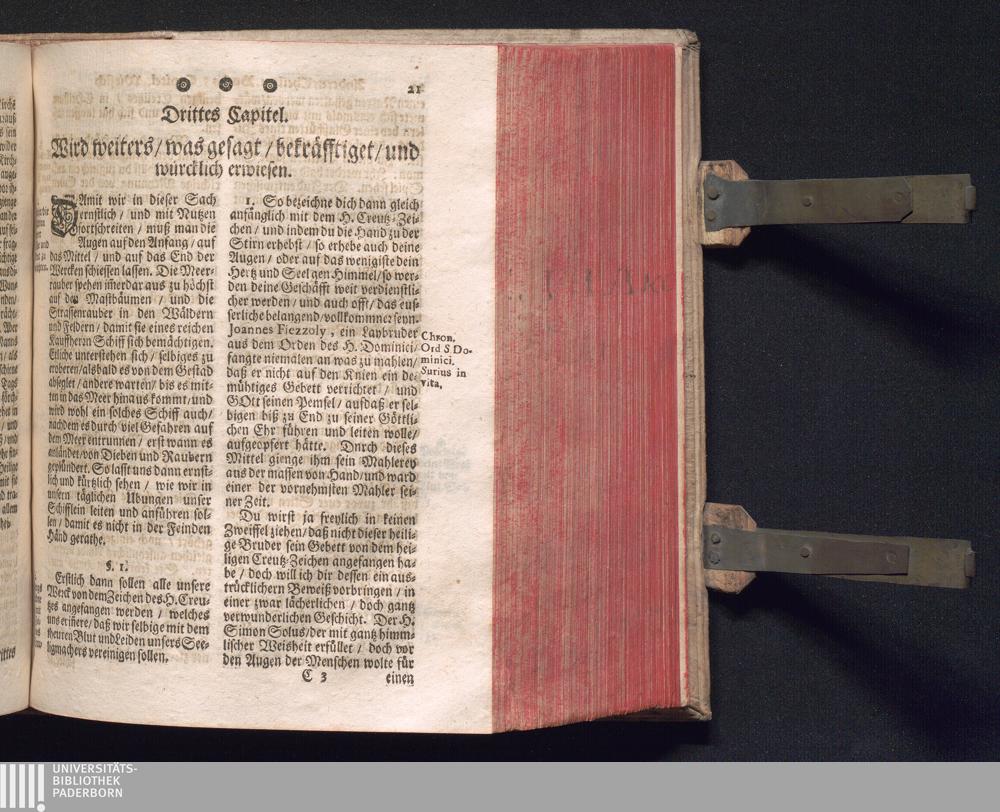 21
Drittes Capitel.
Wird weiters / was gesagt / bekräfftiget / und
würcklich erwiesen.
DAmit wir in dieser Sach
ernstlich / und mit Nutzen
fortschreiten / muß man die
Augen auf den Anfang / auf
das Mittel / und auf das End der
Wercken schiessen lassen. Die Meer-
rauber spehen im̃erdar aus zu höchst
auf den Mastbäumen / und die
Strassenrauber in den Wäldern
und Feldern / damit sie eines reichen
Kauffherꝛn Schiff sich bemächtigen.
Etliche unterstehen sich / selbiges zu
eroberen / alsbald es von dem Gestad
abseglet / andere warten / bis es mit-
ten in das Meer hinaus kommt / und
wird wohl ein solches Schiff auch /
nachdem es durch viel Gefahren auf
dem Meer entrunnen / erst wann es
anländet / von Dieben und Raubern
geplündert. So lasst uns dann ernst-
lich und kürtzlich sehen / wie wir in
unsern täglichen Ubungen unser
Schifflein leiten und anführen sol-
len / damit es nicht in der Feinden
Händ gerathe.
§. 1.
Erstlich dann sollen alle unsere
Werck von dem Zeichen des H. Creu-
tzes angefangen werden / welches
uns eriñere / daß wir selbige mit dem
theuren Blut und Leiden unsers See-
ligmachers vereinigen sollen.
1. So bezeichne dich dann gleich
anfänglich mit dem H. Creutz-Zei-
chen / und indem du die Hand zu der
Stirn erhebst / so erhebe auch deine
Augen / oder auf das wenigiste dein
Hertz und Seel gen Himmel / so wer-
den deine Geschäfft weit verdienstli-
cher werden / und auch offt / das eus-
serliche belangend / vollkommner seyn.
Joannes Fiezzoly, ein Laybruder
aus dem Orden des H. Dominici /
fangte niemalen an was zu mahlen /
daß er nicht auf den Knien ein de-
mühtiges Gebett verrichtet / und
GOtt seinen Pemsel / aufdaß er sel-
bigen biß zu End zu seiner Göttli-
chen Ehr führen und leiten wolle /
aufgeopfert hätte. Dnrch dieses
Mittel gienge ihm sein Mahlerey
aus der massen von Hand / und ward
einer der vornehmsten Mahler sei-
ner Zeit.
Du wirst ja freylich in keinen
Zweiffel ziehen / daß nicht dieser heili-
ge Bruder sein Gebett von dem hei-
ligen Creutz-Zeichen angefangen ha-
be / doch will ich dir dessen ein aus-
trücklichern Beweiß vorbringen / in
einer zwar lächerlichen / doch gantz
verwunderlichen Geschicht. Der H.
Simon Solus / der mit gantz himm-
lischer Weisheit erfüllet / doch vor
den Augen der Menschen wolte für
Chron.
Ord S Do-
minici.
Surius in
vita.
C 3
einen
UNIVERSITÄTS-
BIBLIOTHEK
PADERBORN